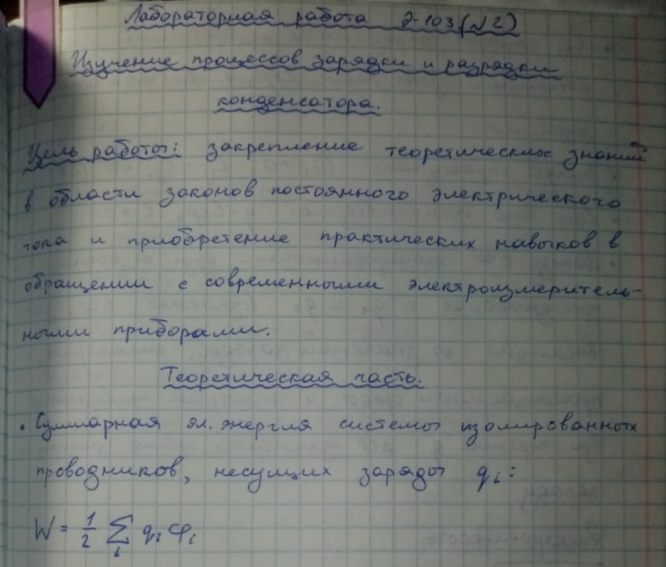 Лабораторная работа Э-103 (№2)
Изучение процессов зарядки и разрядки
конденсатора.
Цель работы: закрепление теоретических знаний
в области законов постоянного электрического
тока и приобретение практических навыков в
обращении с современными электроизмеритель-
ными приборами.
Теоретическая часть.
• Суммарная эл. энергия системы изолированных
проводников, несущих заряды qi:
W = 1/2 ∑i qi φi